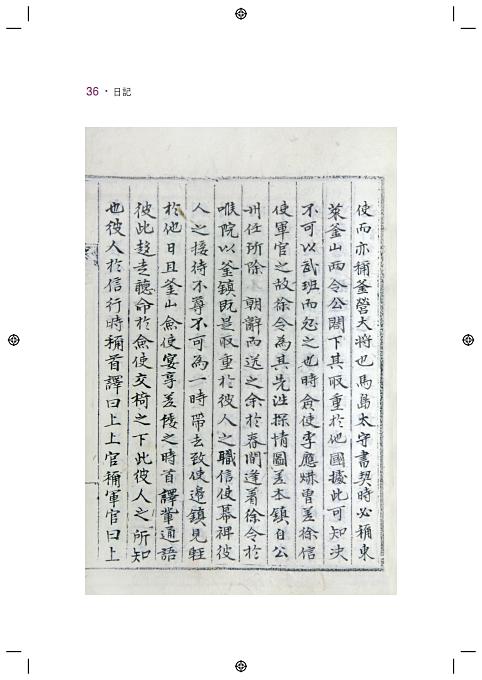 36 · 日記
使而亦稱釜營大將也馬島太守書契時必稱東
萊釜山兩令公閤下其取重於他國據此可知決
不可以武班而忽之也時僉使李應爀曾差徐信
使軍官之故徐令為其先泄探情圖差本鎮自公
州任所除 朝辭而送之余於春間逢着徐令於
喉院以釜鎮旣是取重於彼人之職信使幕裨彼
人之接待不尋不可為一時帶去致使邊鎮見輕
於他日且釜山僉使宴享差倭之時首譯輩通語
彼此趍走聽命於僉使交椅之下此彼人之所知
也彼人於信行時稱首譯曰上上官稱軍官曰上